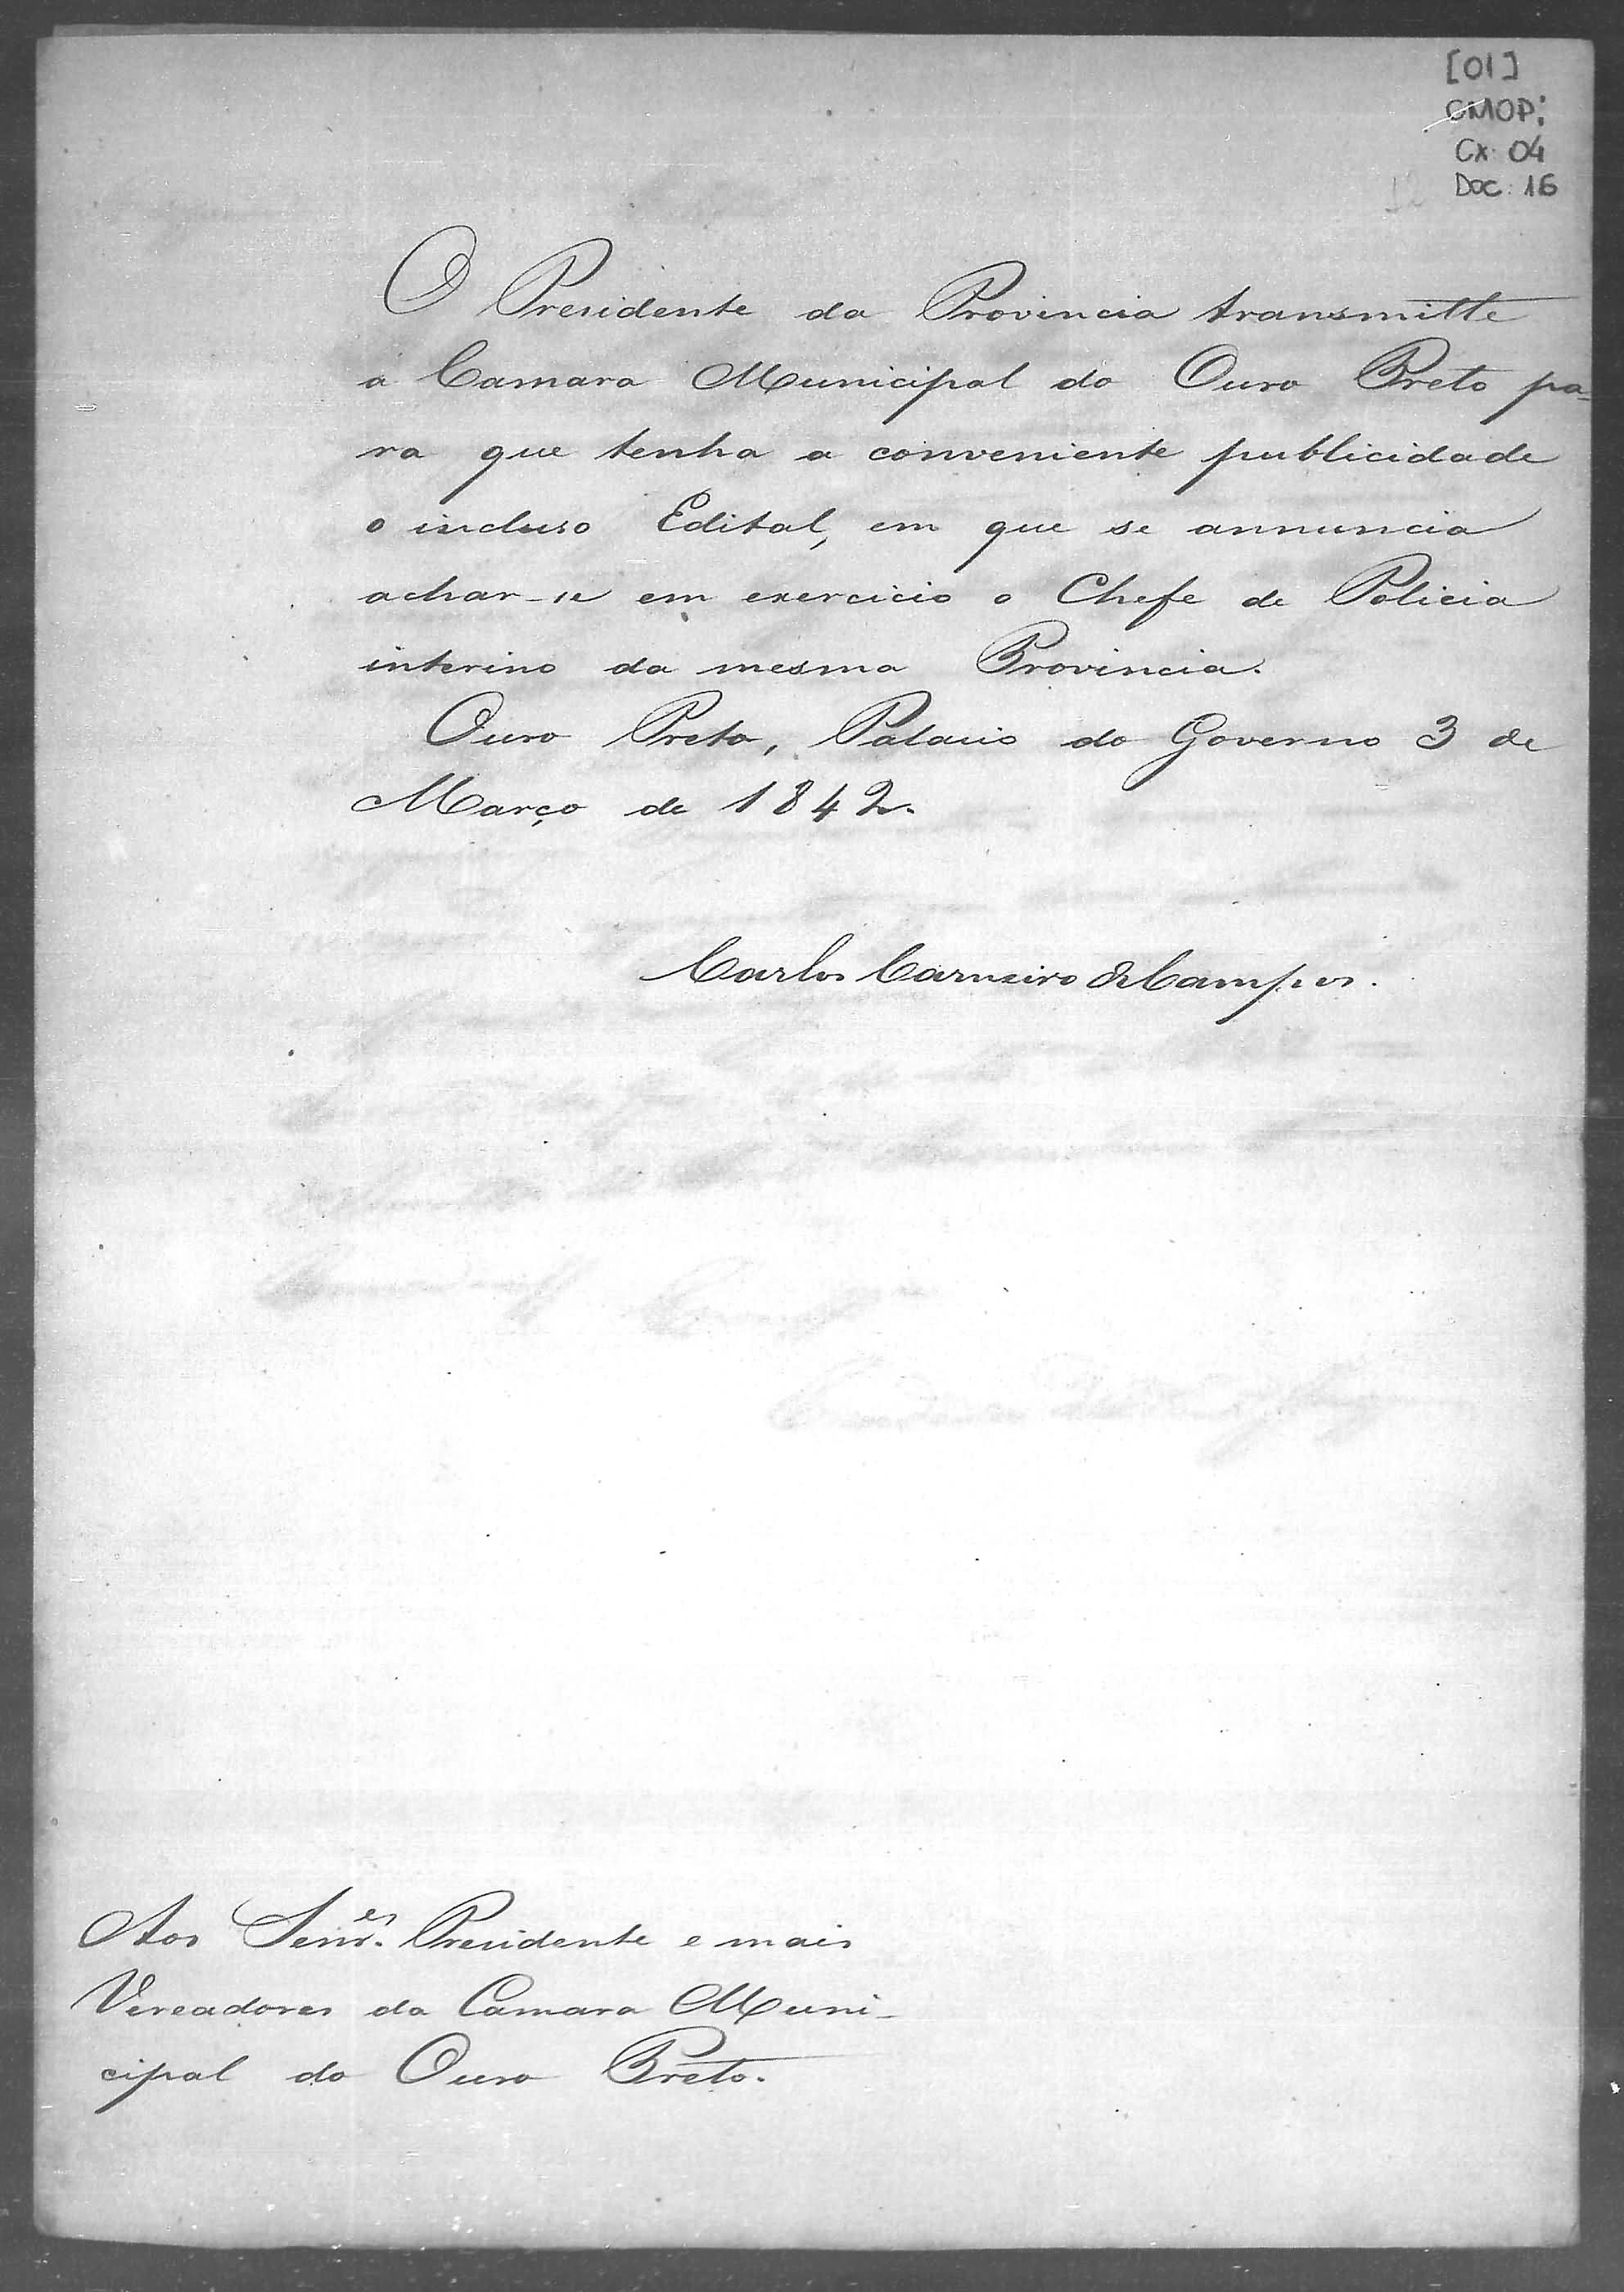 [01]
CMOP:
Cx: 04
Doc: 16
O Presidente da Provincia transmitte
a Camara Municipal do Ouro Preto pa-
ra que tenha a conveniente publicidade
o incluso Edital, em que se annuncia
achar-se em exercicio o Chefe de Policia
interino da mesma Provincia.
Ouro Preto, Palacio do Governo 3 de
Março de 1842.
Carlos Carneiro de Campos.
Aos Senr.es Presidente e mais
Vereadores da Camara Muni-
cipal do Ouro Preto.